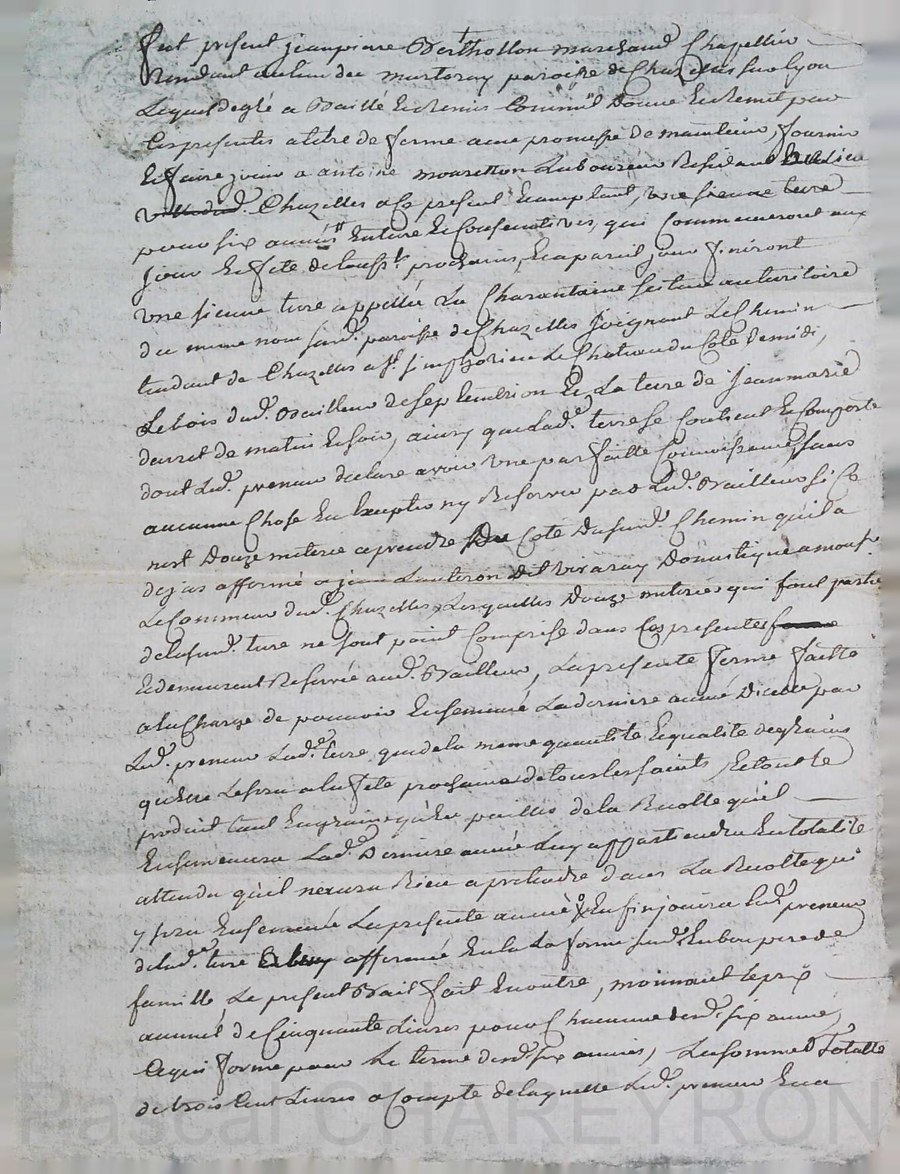 fut présent jeanpierre Berthollon marchand Chapellier
Residant au lieu du martoray paroisse de Chazelles sur lyon
Lequel de gré a Baillé Et Remis Comme il Donne Et Remet par
Ces presentes a titre de ferme avec promesse de maintenir, fournir
Et faire jouir a antoine mouretton Laboureur Residant
Chazelles a Ce present Et acceptant, une sienne terre
pour six années Entieres Et Consecutives, qui Commenceront aux
jour Et fete de toussts prochains, Et a pareil jour finiront
une sienne terre appellée La Charantaine scituée au territoire
du meme nom susd. paroisse de Chazelles joignant Le Chemin
tendant de Chazelles a St simphorien Le Chateau du Coté de midi,
Le bois dud. Bailleur de septentrion Et La terre de jeanmarie
de matin Et soir, ainsy que Lad. terre se Contient Et Comporte
dont Led. preneur declare avoir une parfaitte Connoissance, sans
aucunne Chose En Excepter ny Reserver par Led. Bailleur si Ce
nest Douze meterée a prendre Du Coté Dusud. Chemin qu'il a
dejas affermé a jean Dit vivaray Domestique a mousr
Le Commeur dud. Chazelles, Lesquelles Douze meterées qui font partie
de la susd. terre ne sont point Comprise dans Ces presentes
Et demeurent Reservée aud. Bailleur, La presente ferme faitte
a la Charge de pouvoir Ensemencé La derniere année Dicelle par
Led. preneur Lad. terre que de la meme quantité Et qualité de grains
qu'Elle Le sera a la fete prochaine de tous Les saints, Et tout Le
produit tant En grains qu'En pailles de la Recolte qu'il
Ensemencera Lad. Derniere année Luy appartiendra En totalité
attendu qu'il n'aura Rien a pretendre dans La Recolte qui
y sera Ensemencée La presente année, Enfin jouira Led. preneur
de Lad. terre affermée En la forme susd. En bon pere de
famille Le present Bail fait En outre, moiennant Le prix
annuel de Cinquante Livres pour Chacunne desd. six année,
Ce qui forme pour Le terme desd. six années, La somme totalle
de trois Cent Livres a Compte de laquelle Led. preneur En a
Pascal CHAREYRON